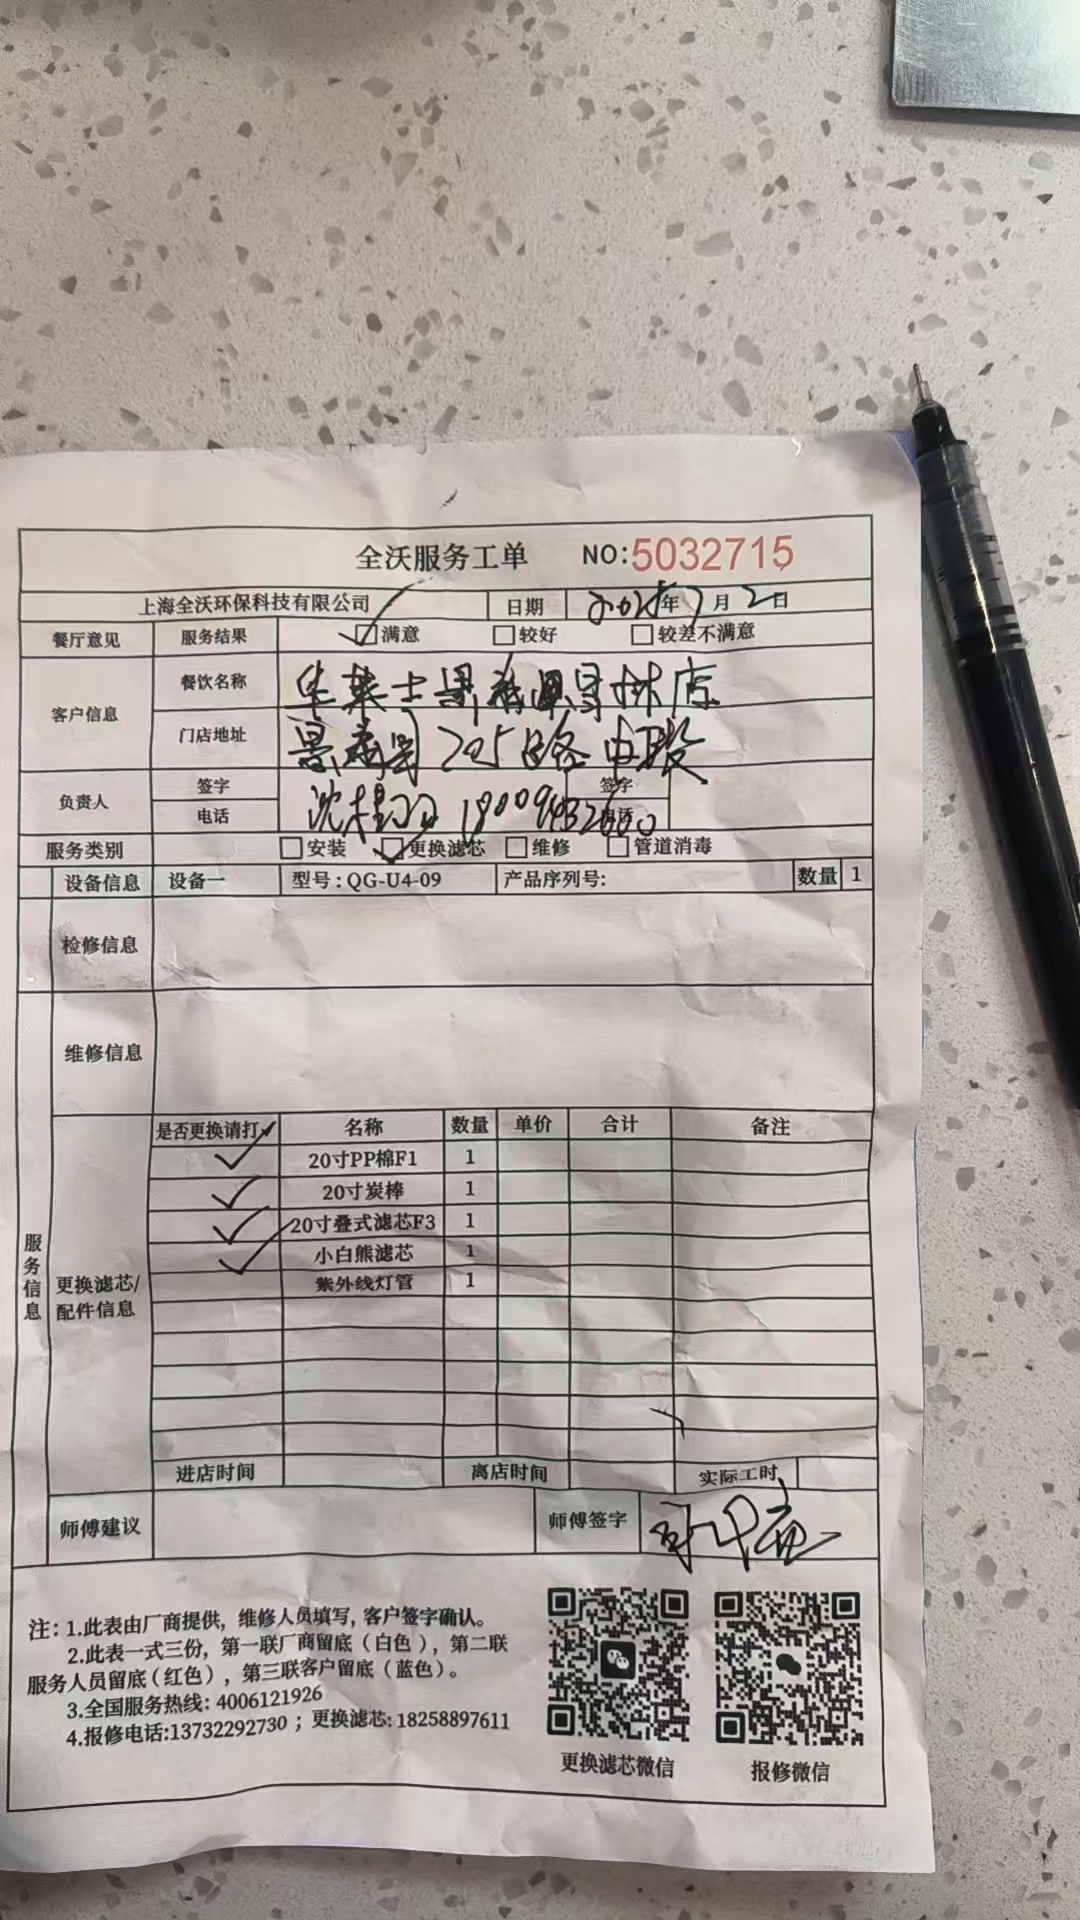 全沃服务工单 NO:5032715
上海全沃环保科技有限公司 日期 2025年7月2日
餐厅意见 服务结果 满意 较好 较差不满意
客户信息 餐饮名称 华莱士景泰 店
门店地址 景泰 205 路
负责人 签字 沈 签字
电话 电话
服务类别 安装 更换滤芯 维修 管道消毒
设备信息 设备一 型号:QG-U4-09 产品序列号: 数量 1
检修信息
维修信息
服务信息
更换滤芯/配件信息
是否更换请打✓ 名称 数量 单价 合计 备注
✓ 20寸PP棉F1 1
✓ 20寸炭棒 1
✓ 20寸叠式滤芯F3 1
✓ 小白熊滤芯 1
紫外线灯管 1
进店时间 离店时间 实际工时
师傅建议 师傅签字
注: 1.此表由厂商提供, 维修人员填写, 客户签字确认。
2.此表一式三份, 第一联厂商留底(白色), 第二联
服务人员留底(红色), 第三联客户留底(蓝色)。
3.全国服务热线: 4006121926
4.报修电话:13732292730 ; 更换滤芯: 18258897611
更换滤芯微信 报修微信